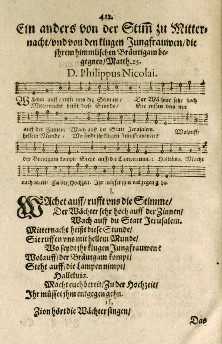 412.
Ein anders von der Stim̃ zu Mitter-
nacht/vnd von den klugen Jungfrauwen/die
jhrem himmlischen Bräutigam be-
gegnen/Matth. 25.
D. Philippus Nicolai.
WAchet auff/ rufft vns die Stimme/ Der Wächter sehr hoch
Mitternacht heißt diese Stunde/ Sie ruffen vns mit
auff der Zinnen/ Wach auff du Statt Jerusalem. Wolauff/
hellem Munde/ Wo seydt jhr klugen Jungfrauwen?
der Bräutigam kompt/ Steht auff/ die Lampen nimpt/ Halleluia. Macht
euch bereit/ Zu der Hochzeit/ Ihr müsset jhm entgegen gehn.
1.
WAchet auff/ rufft vns die Stimme/
Der Wächter sehr hoch auff der Zinnen/
Wach auff du Statt Jerusalem.
Mitternacht heißt diese Stunde/
Sie ruffen vns mit hellem Munde/
Wo seydt jhr klugen Jungfrauwen?
Wolauff/ der Bräutigam kompt/
Steht auff/ die Lampen nimpt/
Halleluia.
Macht euch bereit/ Zu der Hochzeit/
Ihr müsset jhm entgegen gehn.
2.
Zion hört die Wächter singen/
Das